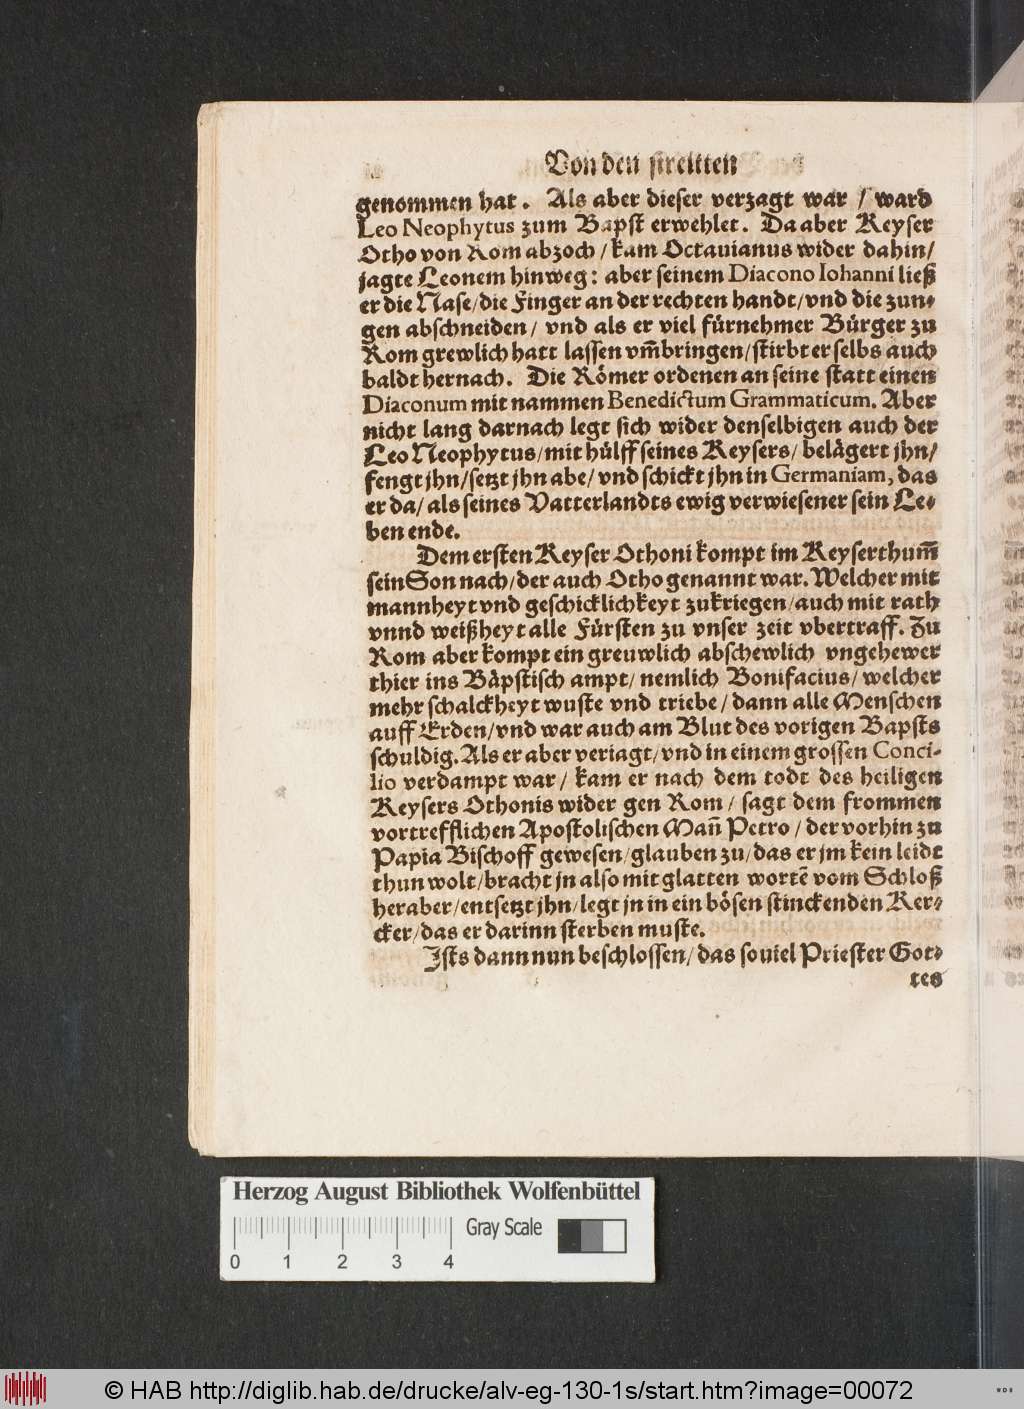 Von den streitten
genommen hat. Als aber dieser verzagt war / ward
Leo Neophytus zum Bapst erwehlet. Da aber Keyser
Otho von Rom abzoch / kam Octauianus wider dahin /
jagte Leonem hinweg: aber seinem Diacono Iohanni ließ
er die Nase / die Finger an der rechten handt / vnd die zun⸗
gen abschneiden / vnd als er viel fürnehmer Bürger zu
Rom grewlich hatt lassen vm̃bringen / stirbt er selbs auch
baldt hernach. Die Römer ordenen an seine statt einen
Diaconum mit nammen Benedictum Grammaticum. Aber
nicht lang darnach legt sich wider denselbigen auch der
Leo Neophytus / mit hülff seines Keysers / belägert jhn /
fengt jhn / setzt jhn abe / vnd schickt jhn in Germaniam, das
er da / als seines Vatterlandts ewig verwiesener sein Le⸗
ben ende.
Dem ersten Keyser Othoni kompt im Keyserthum̃
sein Son nach / der auch Otho genannt war. Welcher mit
mannheyt vnd geschicklichkeyt zukriegen / auch mit rath
vnnd weißheyt alle Fürsten zu vnser zeit vbertraff. Zu
Rom aber kompt ein greuwlich abschewlich vngehewer
thier ins Bäpstisch ampt / nemlich Bonifacius / welcher
mehr schalckheyt wuste vnd triebe / dann alle Menschen
auff Erden / vnd war auch am Blut des vorigen Bapsts
schuldig. Als er aber veriagt / vnd in einem grossen Conci-
lio verdampt war / kam er nach dem todt des heiligen
Keysers Othonis wider gen Rom / sagt dem frommen
vortrefflichen Apostolischen Mañ Petro / der vorhin zu
Papia Bischoff gewesen / glauben zu / das er jm kein leidt
thun wolt / bracht jn also mit glatten wortẽ vom Schloß
heraber / entsetzt jhn / legt jn in ein bösen stinckenden Ker⸗
cker / das er darinn sterben muste.
Ists dann nun beschlossen / das souiel Priester Got⸗
tes
Herzog August Bibliothek Wolfenbüttel
Gray Scale
0 1 2 3 4
© HAB http://diglib.hab.de/drucke/alv-eg-130-1s/start.htm?image=00072